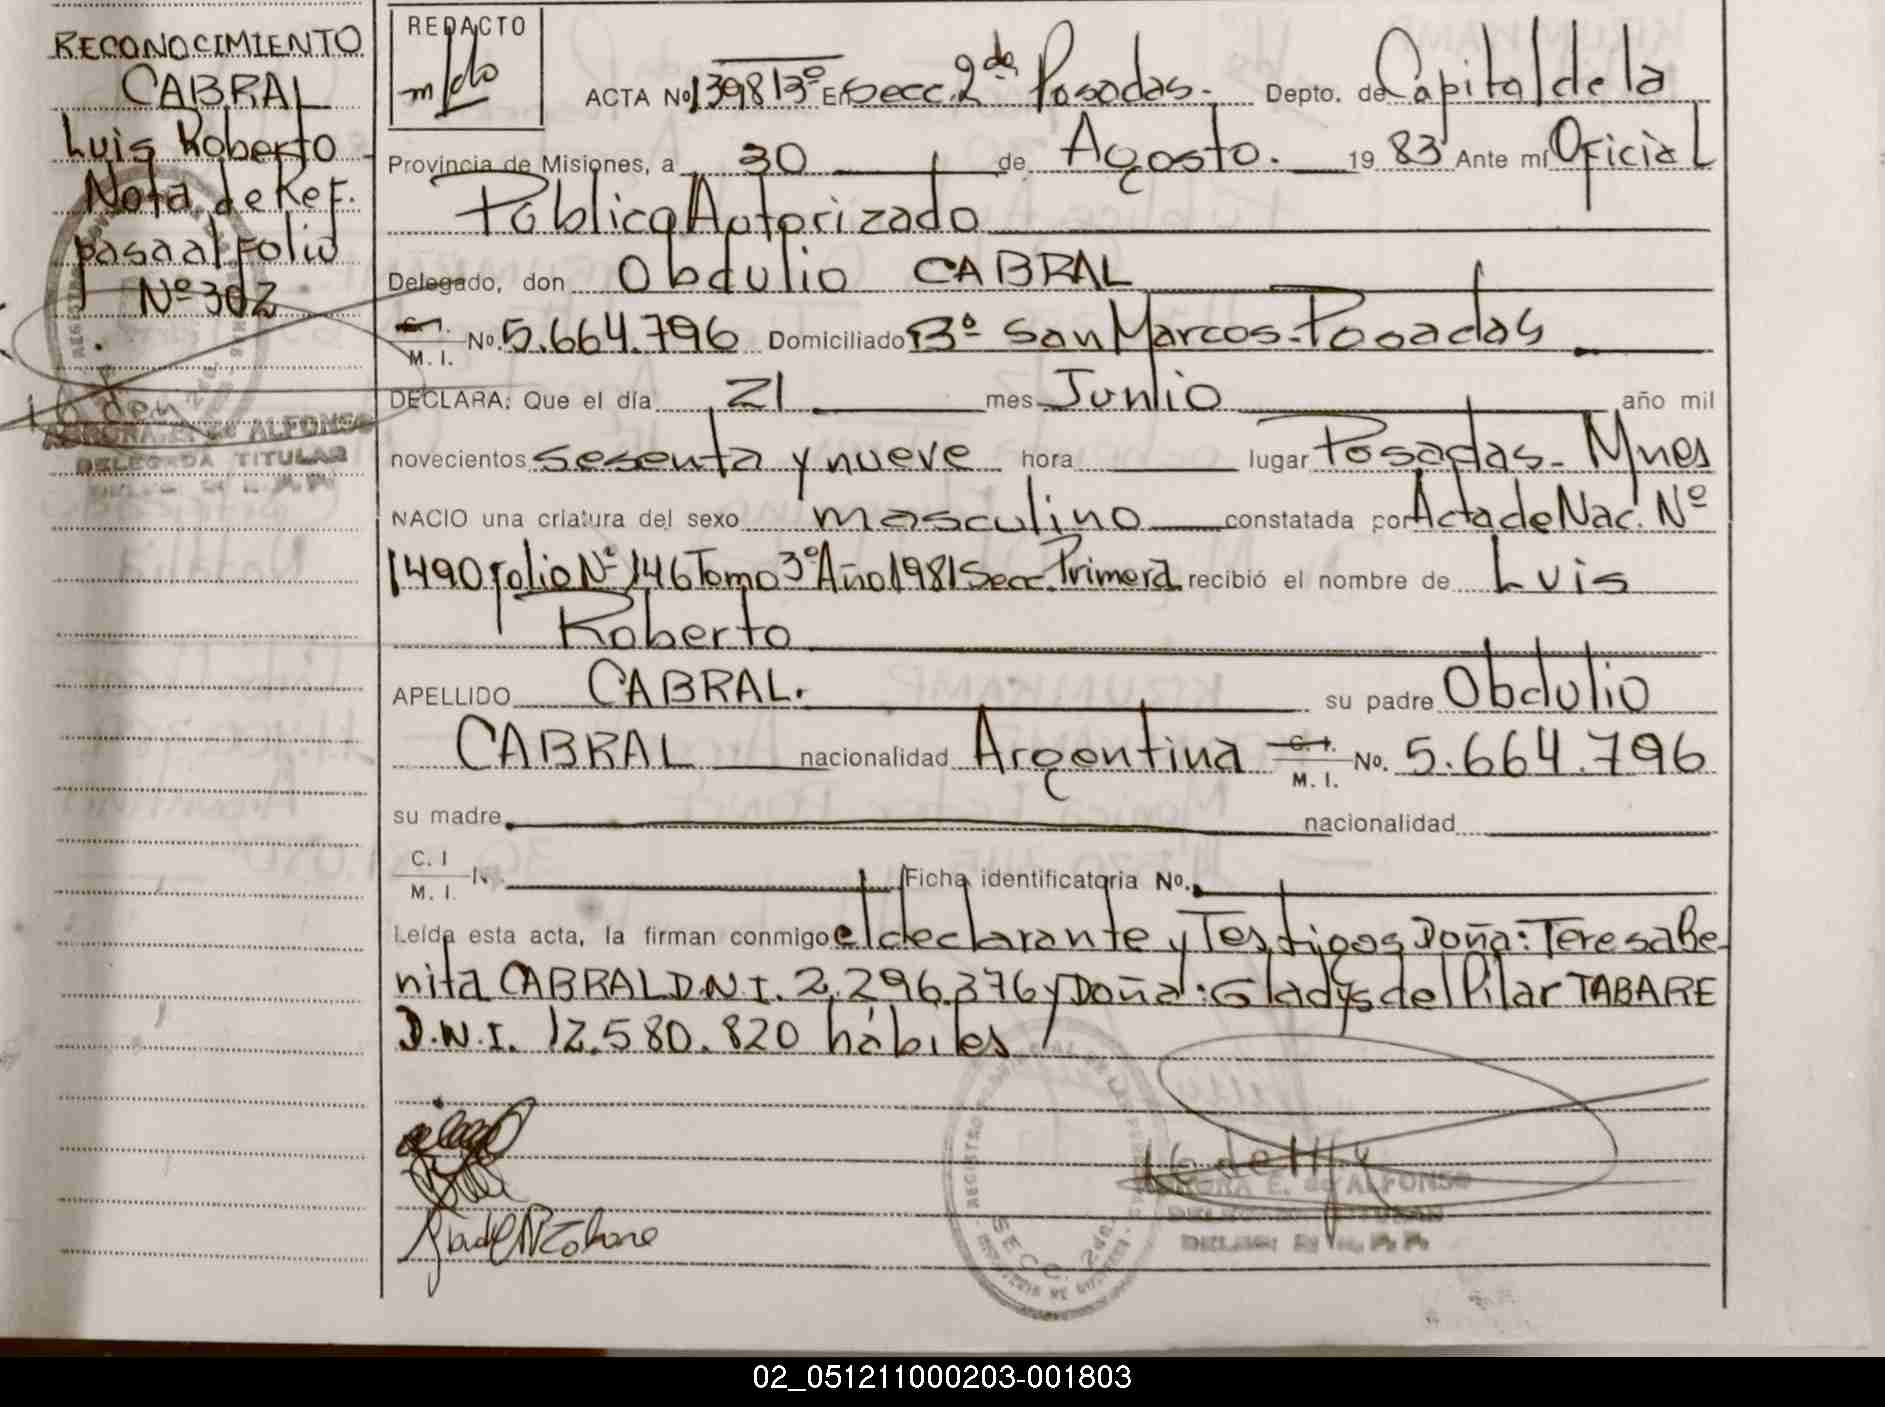 RECONOCIMIENTO
CABRAL
Luis Roberto
Nota de Ref.
pasa al Folio
Nº 302
ALFONSO
DELEGADA TITULAR
REDACTO
ACTA Nº 1398 T 3º En Secc. 2da Posadas.- Depto. de Capital de la
Provincia de Misiones, a 30 de Agosto. 19 83 Ante mí Oficial
Público Autorizado
Delegado, don Obdulio CABRAL
C. I.
M. I. No. 5.664.796 Domiciliado Bº San Marcos-Posadas
DECLARA: Que el día 21 mes Junio año mil
novecientos sesenta y nueve hora lugar Posadas-Mnes
NACIO una criatura del sexo masculino constatada por Acta de Nac. Nº
1490 folio Nº 146 Tomo 3º Año 1981 Secc. Primera recibió el nombre de Luis
Roberto
APELLIDO CABRAL. su padre Obdulio
CABRAL nacionalidad Argentina C. I. No. 5.664.796
M. I.
su madre nacionalidad
C. I
M. I. N. Ficha identificatoria No.
Leída esta acta, la firman conmigo el declarante y Testigos Doña: Teresa Be-
nita CABRAL D.N.I. 2.296.376 y Doña: Gladys del Pilar TABARE
D.N.I. 12.580.820 hábiles
REGISTRO
SECC. 2da.
E. de ALFONSO
02_051211000203-001803